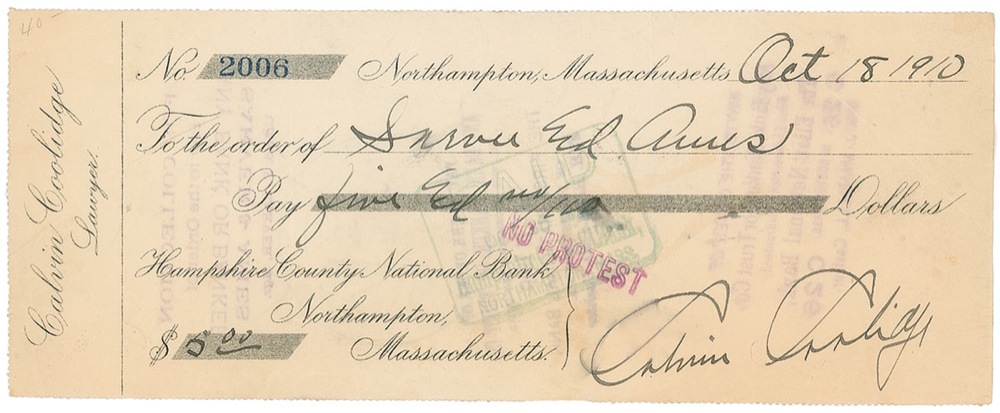 40
Calvin Coolidge
Lawyer.
No. 2006 Northampton, Massachusetts Oct 18 1910
To the order of Ed Ames
Pay five no/100 Dollars
NO PROTEST
Hampshire County National Bank
Northampton,
Massachusetts.
$ 5 00
Calvin Coolidge